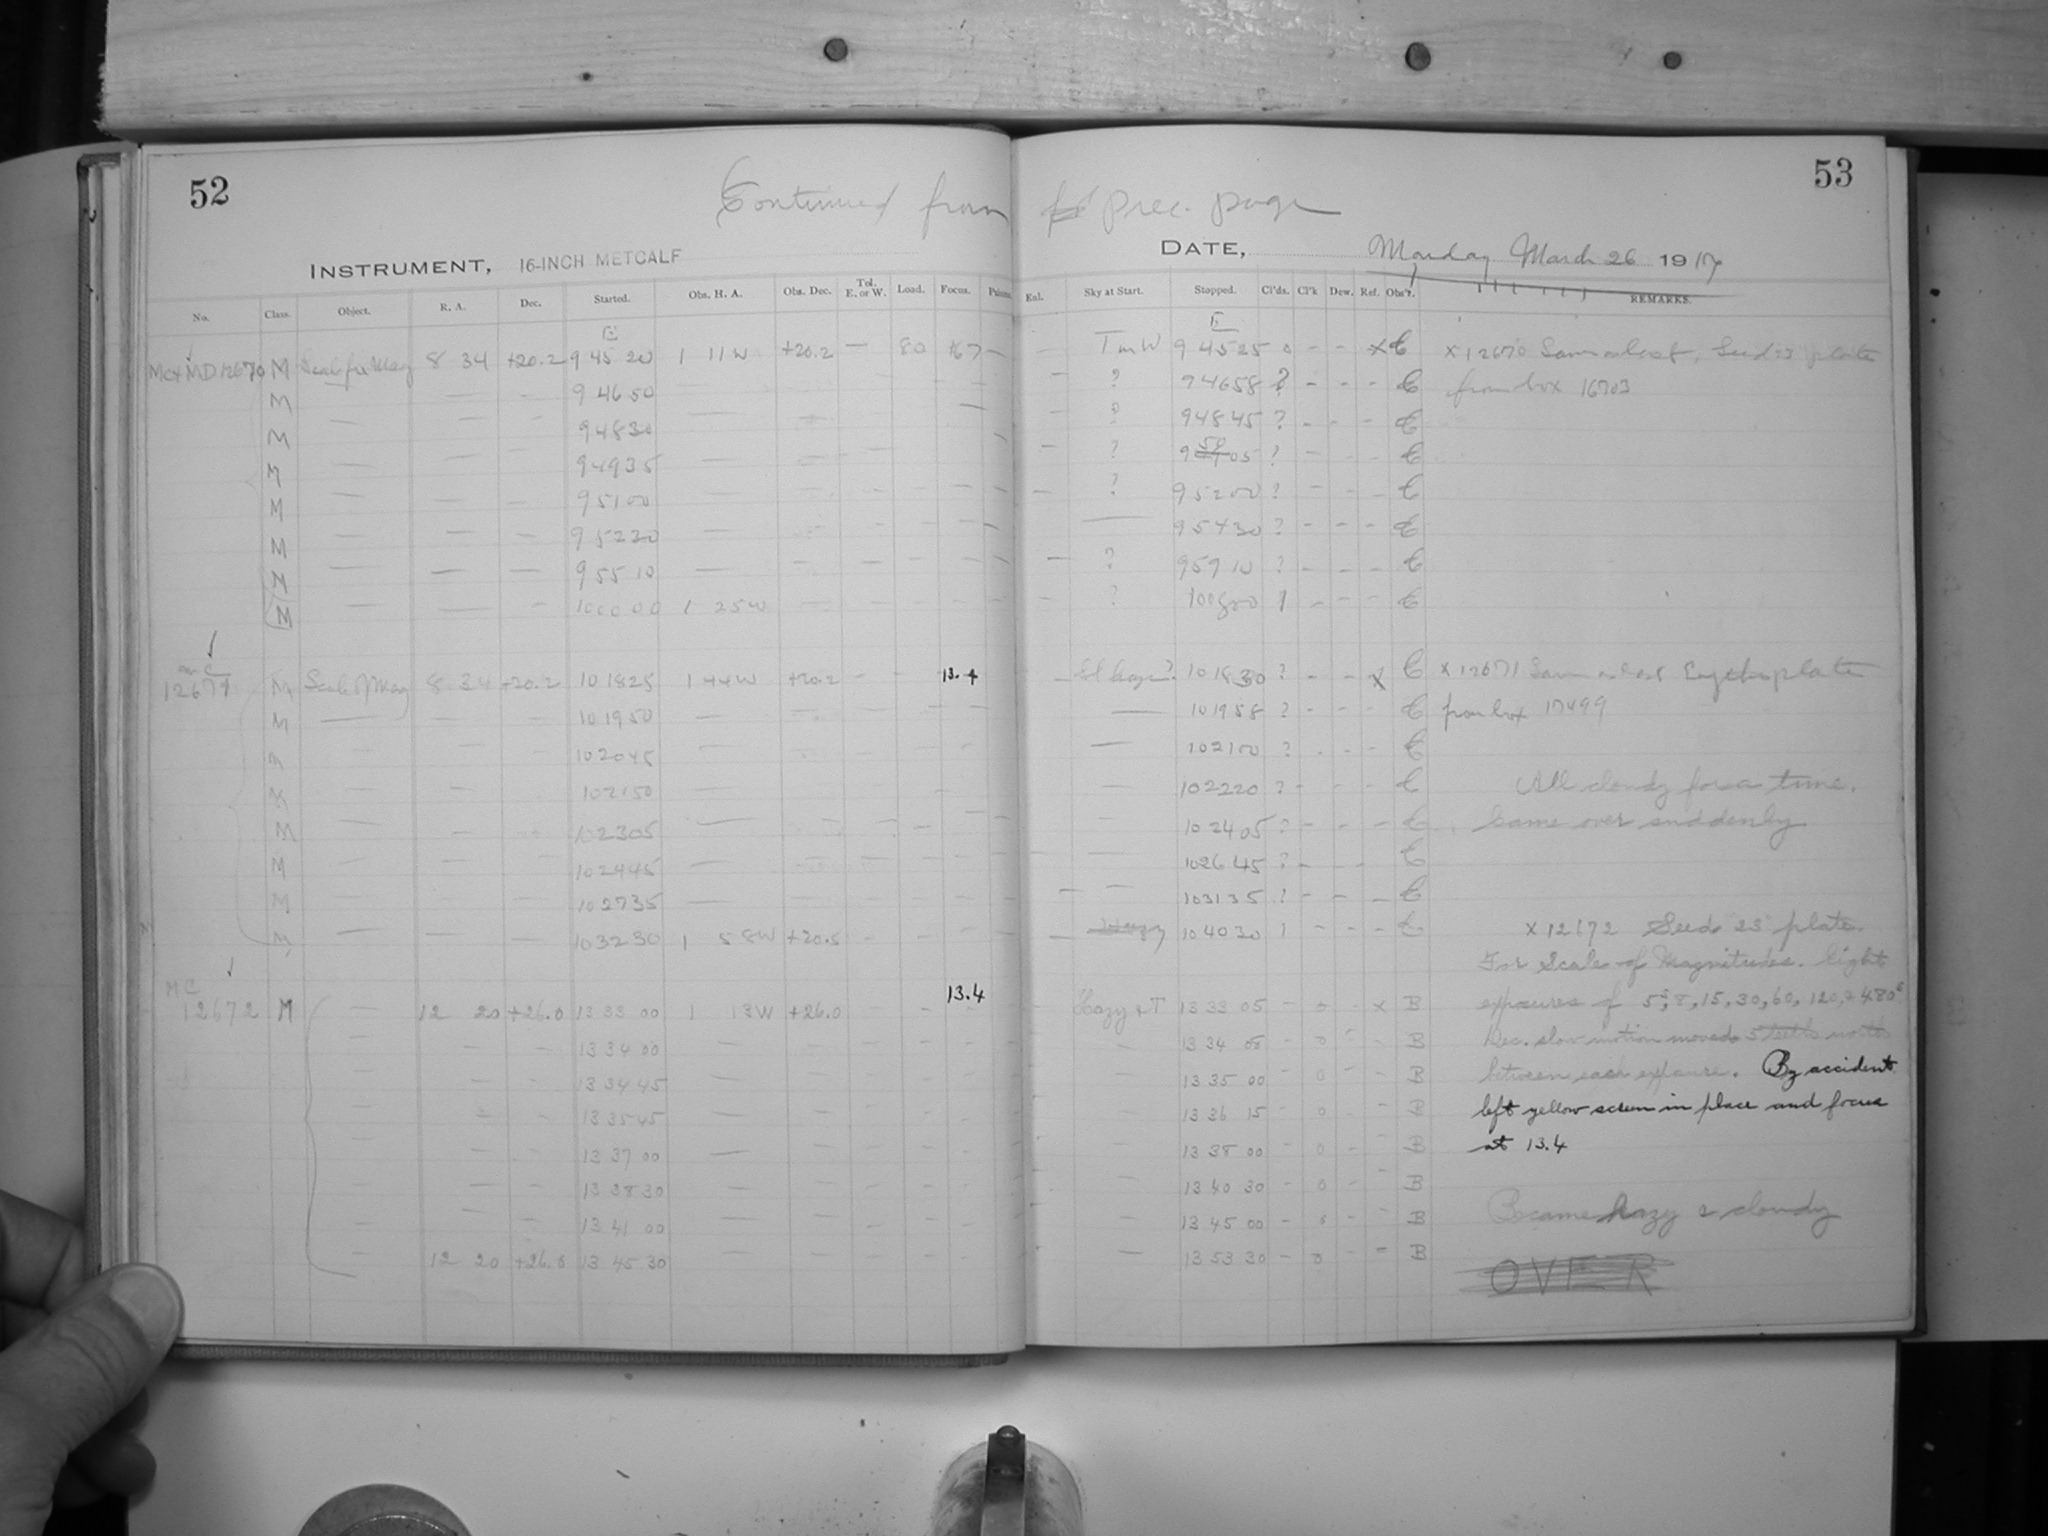 52
Continued from prec. page
53
INSTRUMENT, 16-INCH METCALF
DATE, Monday March 26 1917
No. Class. Object. R. A. Dec. Started. Obs. H. A. Obs. Dec. Tel. E. or W. Load. Focus.
Enl. Sky at Start. Stopped. Cl'ds. Cl'k Dew. Ref. Obs'r. REMARKS.
E
E
12670 M Scale for Mag 8 34 +20.2 9 45 20 1 11 W +20.2 — 80 — 9 45 25 0 - - X C X 12670 Same as last, Seed 23 plate
M — — 9 46 50 — ? 9 46 58 ? - - - C from box 16703
M — — — 9 48 30 — ? 9 48 45 ? - - - C
M — — — 9 49 35 — ? 9 50 05 ? - - C
M — — — 9 51 00 — ? 9 52 00 ? - - - C
M — — — 9 52 30 — — 9 54 30 ? - - - C
M — — — 9 55 10 — ? 9 57 10 ? - - - C
M — — - 10 00 00 1 25 W ? 10 08 00 - - - C
MC
12671 M Scale of Mag 8 34 +20.2 10 18 25 1 44 W +20.2 - - 13.4 Sl hazy? 10 18 30 ? - - X C X 12671 Same as last plate
M — 10 19 50 — — 10 19 58 ? - - - C from box 17499
M — — — 10 20 45 — — 10 21 00 ? - - - C
M — — — 10 21 50 — — 10 22 20 ? - - - C All cloudy for a time.
M — - - 10 23 05 — — 10 24 05 ? - - - C Came over suddenly
M — — — 10 24 45 — — 10 26 45 ? - - - C
M — — — 10 27 35 — — 10 31 35 ? - - - C
M — — — 10 32 30 1 58 W +20.5 - Hazy 10 40 30 1 - - - C X 12672 Seed 23 plate.
For Scale of Magnitudes. Eight
MC
12672 M 12 20 +26.0 13 33 00 1 13 W +26.0 - - 13.4 Hazy & T 13 33 05 - 0 - X B exposures of 5s, 8, 15, 30, 60, 120, & 480s
— — — 13 34 00 — - 13 34 08 - 0 - - B Dec. slow motion moved 5 teeth north
— — — 13 34 45 — - 13 35 00 - 0 - - B between each exposure. By accident
— — - 13 35 45 — - 13 36 15 - 0 - - B left yellow screen in place and focus
— — - 13 37 00 — — 13 38 00 - 0 - - B at 13.4
— — — 13 38 30 — — 13 40 30 - 0 - - B
— — - 13 41 00 — — 13 45 00 - 0 - - B Became hazy & cloudy
— 12 20 +26.0 13 45 30 — — 13 53 30 - 0 - - B
OVER